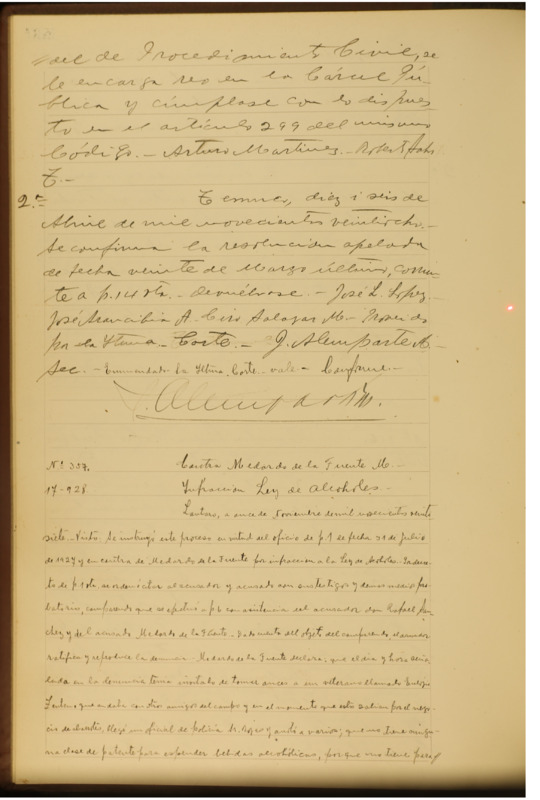 del de Procedimiento Civil, se
le encarga reo en la Cárcel Pú-
blica y cúmplase con lo dispues-
to en el artículo 299 del mismo
Código.- Arturo Martinez.- Roberto
T.-
2.º Temuco, diez i seis de
Abril de mil novecientos veintiocho.-
Se confirma la resolución apelada
de fecha veinte de Marzo último, corrien-
te a p. 14 vta.- Devuélvase.- José L. Lopez.-
José Arancibia A. Ciro Salazar M.- Proveido
por la Iltma. Corte.- J. Alemparte M.
Sec.- Enmendado la Iltma. Corte vale.- Conforme.-
Nº 307. Contra Medardo de la Fuente M.-
17-928 Infraccion Ley de Alcoholes.-
Lautaro, a once de Noviembre de mil novecientos veinte
siete.- Visto: Se instruyó este proceso en virtud del oficio de p. 1 de fecha 21 de Julio
de 1927 y en contra de Medardo de la Fuente por infraccion a la Ley de Alcoholes.
to de p. 1 vta. se ordenó citar al acusador y acusado con sus testigos y demas medios pro-
batorios, comparendo que se efectuó a p. 6 con asistencia del acusador don Rafael
chez y del acusado Medardo de la Fuente.- del objeto del comparendo el acusador
ratifica y reproduce la denuncia.- Medardo de la Fuente declara; que el dia y hora
dada en la denuncia tenia invitado de tomar a un veterano llamado
que andaba con dos amigos del campo y en el momento que estos salian por el nego-
cio de abarrotes, llegó un oficial de policia Sr. Rojas y que no tiene ningu-
na clase de patente para expender bebidas alcohólicas, porque no tiene